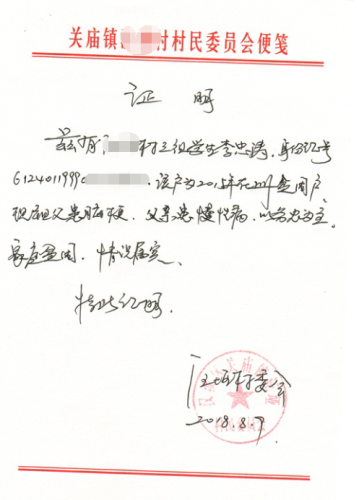 关庙镇 村村民委员会便笺
证 明
兹有 村三组学生李忠涛,身份证号
6124011999 ,该户为201 年在 贫困户,
现祖父患脑梗,父亲患慢性病,以务农为主,
家庭贫困,情况属实。
特此证明。
村委会
2018.8.9